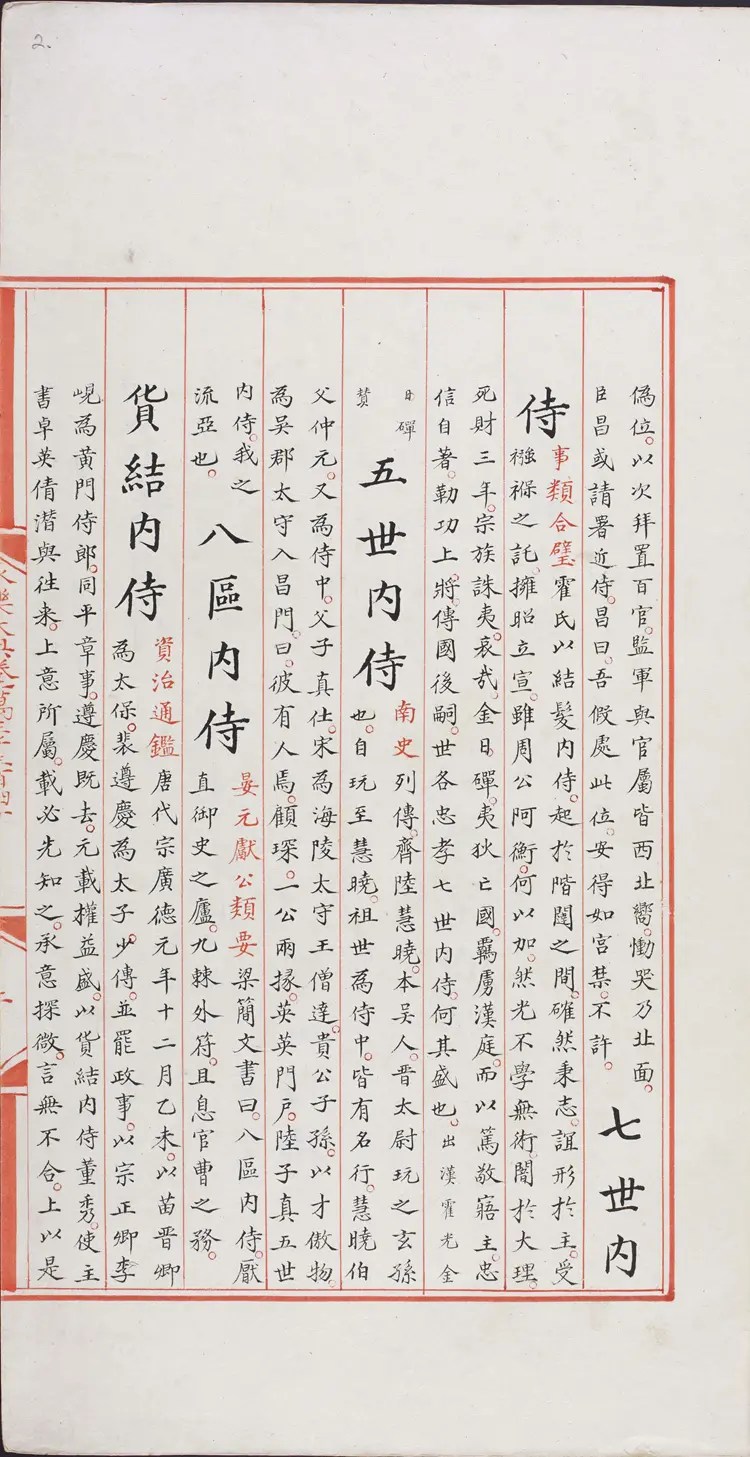 2.
偽位。以次拜置百官。監軍與官屬皆西北嚮。慟哭乃北面。
臣昌或請署近侍。昌曰。吾假處此位。安得如宮禁。不許。
七世内
侍
事類合璧霍氏以結髮内侍。起於階闥之間。確然秉志。誼形於主。受
襁褓之託。擁昭立宣。雖周公阿衡。何以加。然光不學無術。闇於大理。
死財三年。宗族誅夷。哀哉。金日磾。夷狄亡國。羈虜漢庭。而以篤敬寤主。忠
信自著。勒功上將。傳國後嗣。世各忠孝七世内侍。何其盛也。出漢霍光金
日磾
贊
五世内侍
南史列傳。齊陸慧曉。本吳人。晉太尉玩之玄孫
也。自玩至慧曉。祖世為侍中。皆有名行。慧曉伯
父仲元。又為侍中。父子真仕。宋為海陵太守王僧達。貴公子孫。以才傲物。
為吳郡太守入昌門。曰。彼有人焉。顧琛。一公兩掾。英英門戶。陸子真五世
内侍。我之
流亞也。
八區内侍
晏元獻公類要梁簡文書曰。八區内侍。厭
直御史之廬。九棘外符。且息官曹之務。
貨結内侍
資治通鑑唐代宗廣德元年十二月乙未。以苗晉卿
為太保。裴遵慶為太子少傳。並罷政事。以宗正卿李
峴為黃門侍郎。同平章事。遵慶既去。元載權益盛。以貨結内侍董秀。使主
書卓英倩潛與往来。上意所屬。載必先知之。承意探微。言無不合。上以是